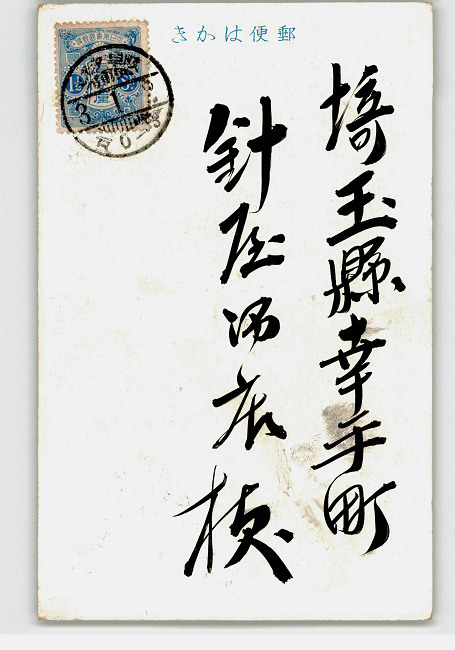 きかは便郵
埼玉縣幸手町
針屋酒店様